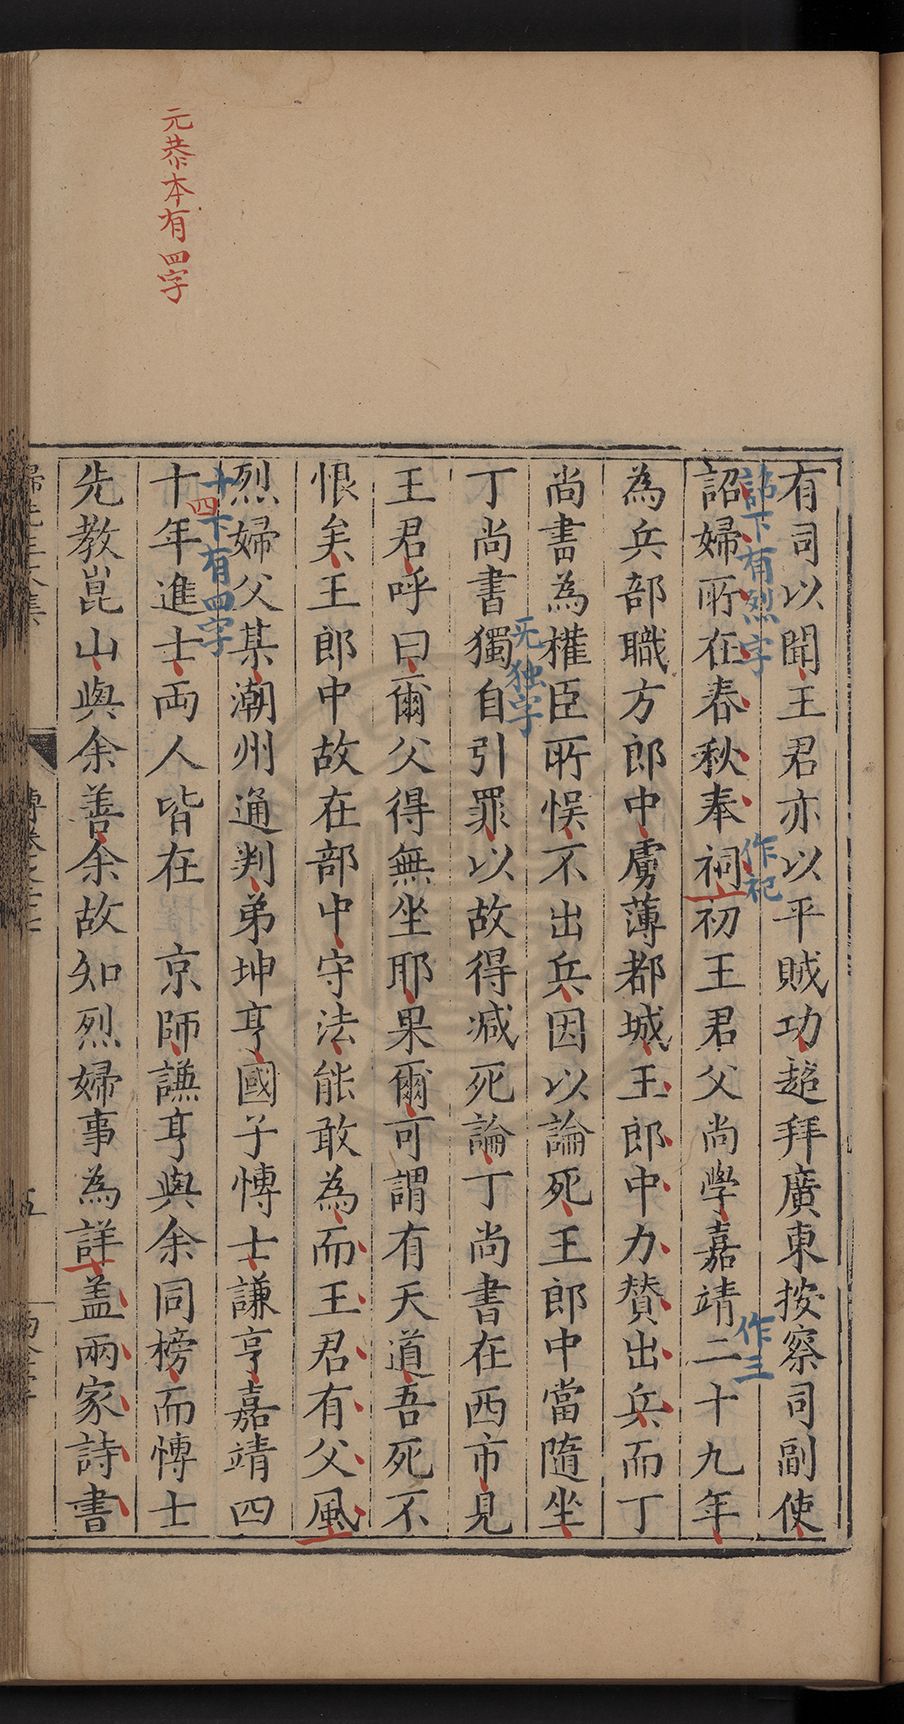 有司以聞王君亦以平賊功超拜廣東按察司副使
詔婦所在春秋奉祠初王君父尚學嘉靖二十九年
詔下有烈字
作祀
作三
為兵部職方郎中虜薄都城王郎中力贊出兵而丁
尚書為權臣所悞不出兵因以論死王郎中當隨坐
无独字
丁尚書獨自引罪以故得減死論丁尚書在西市見
王君呼曰爾父得無坐耶果爾可謂有天道吾死不
恨矣王郎中故在部中守法能敢為而王君有父風
烈婦父某潮州通判弟坤亨國子博士謙亨嘉靖四
十下有四字
四
十年進士両人皆在京師謙亨與余同榜而博士
元恭本有四字
先教崑山與余善余故知烈婦事為詳盖兩家詩書